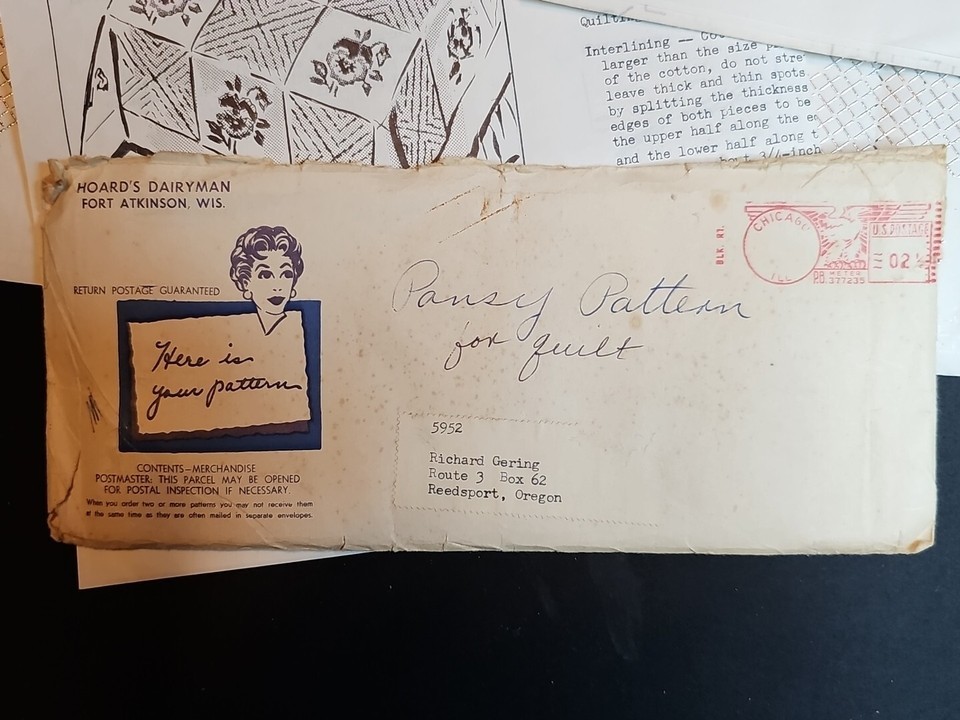 Interlining —
larger than the size
of the cotton, do not
leave thick and thin spots
by splitting the thickness
edges of both pieces to be
the upper half along the
and the lower half along
3/4-inch
HOARD'S DAIRYMAN
FORT ATKINSON, WIS.
RETURN POSTAGE GUARANTEED
Here is
your pattern
CONTENTS—MERCHANDISE
POSTMASTER: THIS PARCEL MAY BE OPENED
FOR POSTAL INSPECTION IF NECESSARY.
When you order two or more patterns you may not receive them
at the same time as they are often mailed in separate envelopes.
Pansy Pattern
for quilt
BLK. RT.
CHICAGO
ILL
U.S. POSTAGE
02
PB METER
P.O. 377235
5952
Richard Gering
Route 3 Box 62
Reedsport, Oregon